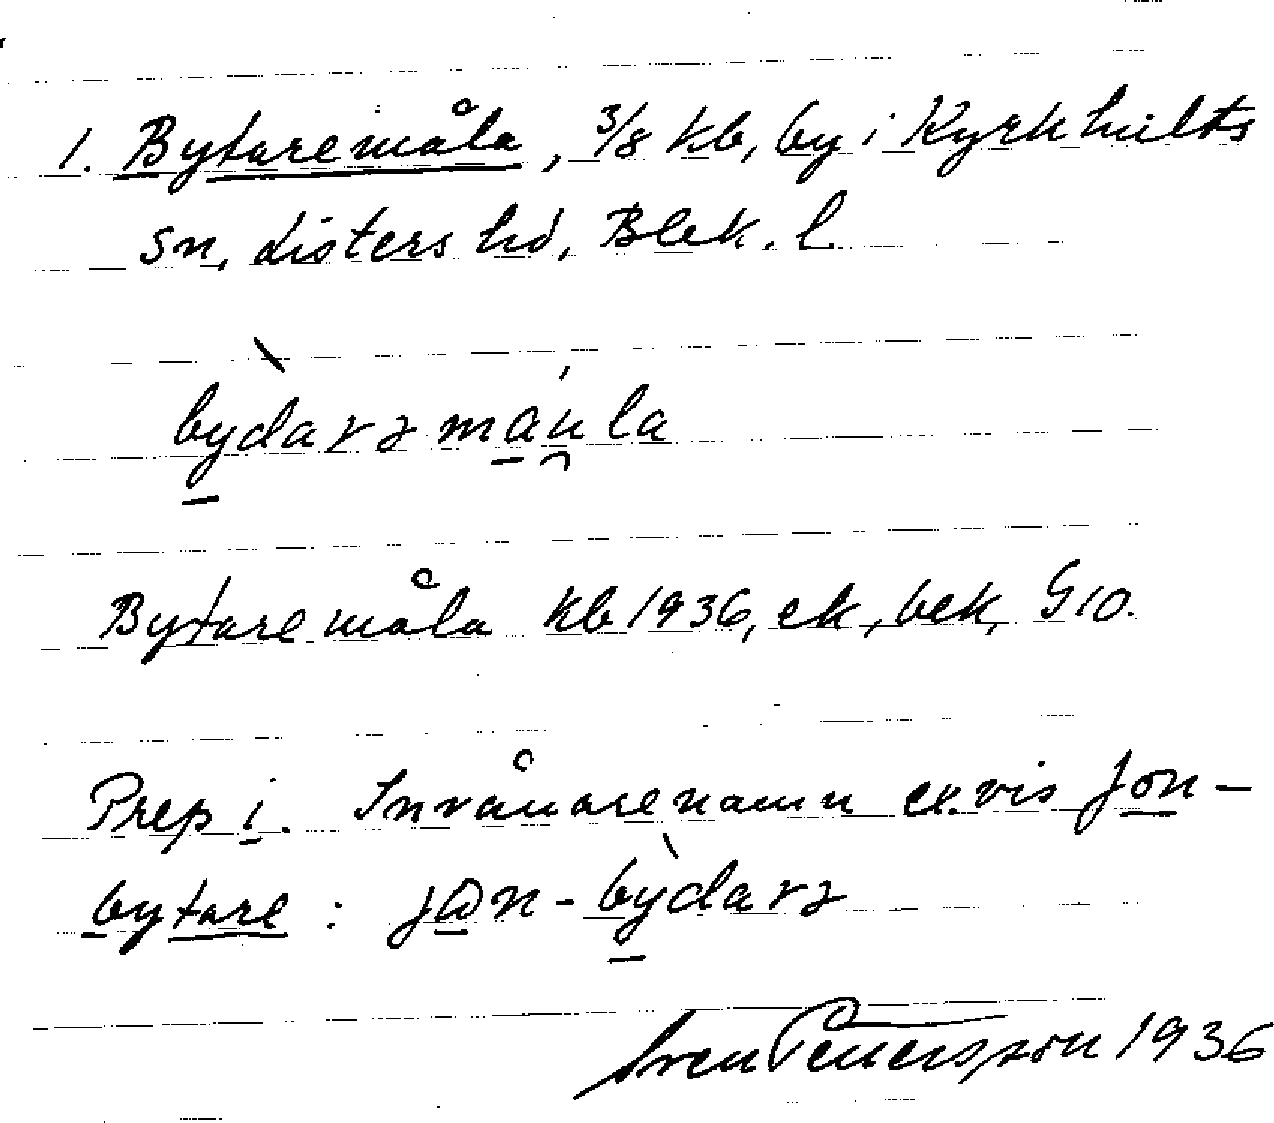 1. Bytaremåla, 3/8 kb, by i Kyrkhults
sn, Listers hd, Blek. l.
bỳdarəmáu̯la
Bytaremåla kb 1936, ek, bek, G10.
Prep i. Invånarenamn ex.vis Jon-
bytare: jɷn-bỳdarə
Sven Pettersson 1936